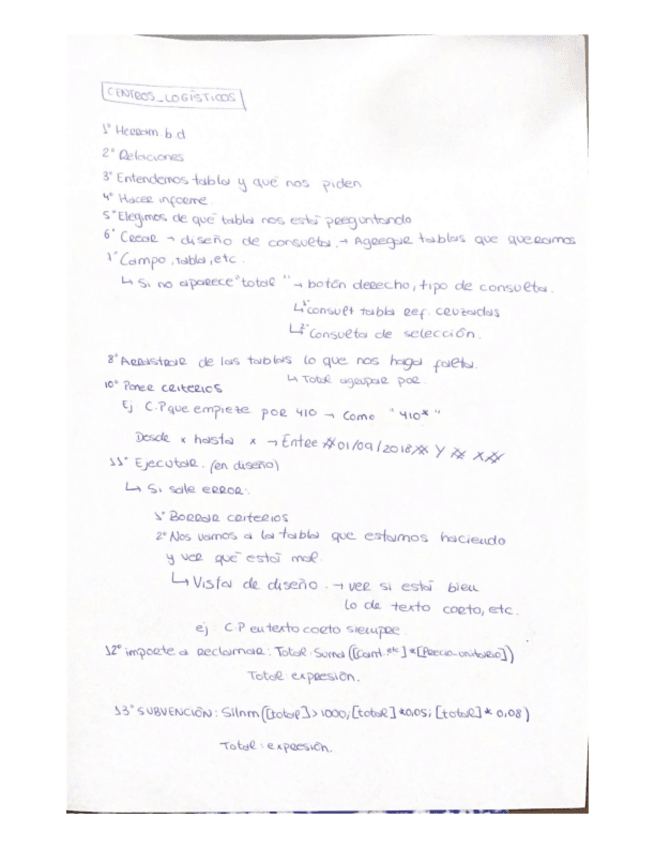 CENTROS_LOGÍSTICOS
1º Herram. b.d
2º Relaciones
3º Entendemos tabla y qué nos piden
4º Hacer informe
5º Elegimos de qué tabla nos está preguntando
6º Crear → diseño de consulta. → Agregar tablas que queramos
7º Campo, tabla, etc.
↳ Si no aparece "total" → botón derecho, tipo de consulta.
↳ 1º consult tabla ref. cruzadas
↳ 2º Consulta de selección.
8º Arrastrar de las tablas lo que nos haga falta.
↳ Total agrupar por.
10º Poner criterios
Ej C.P que empieze por 410 → Como "410*"
Desde x hasta x → Entre #01/09/2018# Y # X#
11º Ejecutar. (en diseño)
↳ Si sale error:
1º Borrar criterios
2º Nos vamos a la tabla que estamos haciendo
y ver qué está mal.
↳ Vista de diseño. → ver si está bien
lo de texto corto, etc.
ej: C.P en texto corto siempre.
12º importe a reclamar: Total: Suma([Cant. etc]*[Precio-unitario])
Total: expresión.
13º SUBVENCIÓN: SiInm([total]>1000;[total]*0,05;[total]*0,08)
Total: expresión.